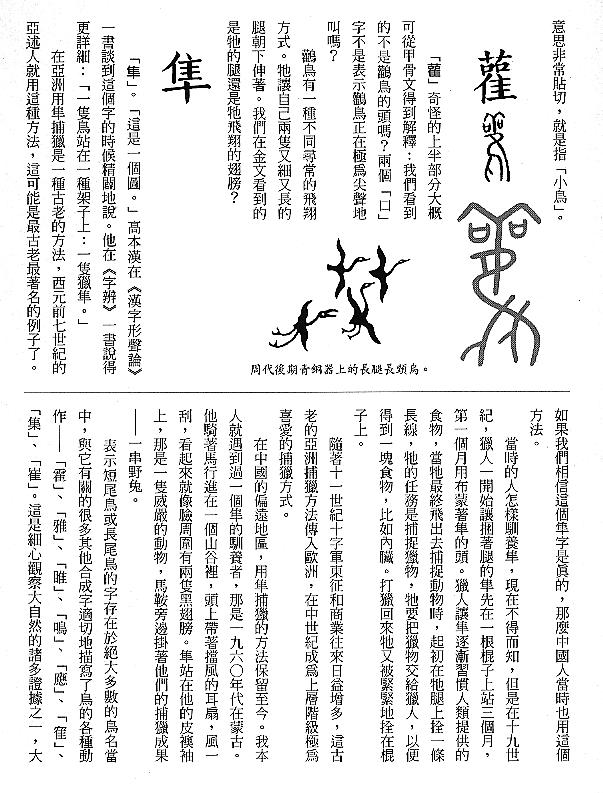 意思非常貼切，就是指「小鳥」。
雚
「雚」奇怪的上半部分大概
可從甲骨文得到解釋：我們看到
的不是鸛鳥的頭嗎？兩個「口」
字不是表示鸛鳥正在極為尖聲地
叫嗎？
鸛鳥有一種不同尋常的飛翔
方式。牠讓自己兩隻又細又長的
腿朝下伸著。我們在金文看到的
是牠的腿還是牠飛翔的翅膀？
周代後期青銅器上的長腿長頸鳥。
隼
「隼」。「這是一個圖。」高本漢在《漢字形聲論》
一書談到這個字的時候精闢地說。他在《字辨》一書說得
更詳細：「一隻鳥站在一種架子上：一隻獵隼。」
在亞洲用隼捕獵是一種古老的方法，西元前七世紀的
亞述人就用這種方法，這可能是最古老最著名的例子了。
如果我們相信這個隼字是真的，那麼中國人當時也用這個
方法。
當時的人怎樣馴養隼，現在不得而知，但是在十九世
紀，獵人一開始讓捆著腿的隼先在一根棍子上站三個月，
第一個月用布蒙著隼的頭。獵人讓隼逐漸習慣人類提供的
食物，當牠最終飛出去捕捉動物時，起初在牠腿上拴一條
長線，牠的任務是捕捉獵物，牠要把獵物交給獵人，以便
得到一塊食物，比如內臟。打獵回來牠又被緊緊地拴在棍
子上。
隨著十一世紀十字軍東征和商業往來日益增多，這古
老的亞洲捕獵方法傳入歐洲，在中世紀成為上層階級極為
喜愛的捕獵方式。
在中國的偏遠地區，用隼捕獵的方法保留至今。我本
人就遇到過一個隼的馴養者，那是一九六〇年代在蒙古。
他騎著馬行進在一個山谷裡，頭上帶著擋風的耳扇，風一
刮，看起來就像臉周圍有兩隻黑翅膀。隼站在他的皮襖袖
上，那是一隻威嚴的動物，馬鞍旁邊掛著他們的捕獵成果
——一串野兔。
表示短尾鳥或長尾鳥的字存在於絕大多數的鳥名當
中，與它有關的很多其他合成字適切地描寫了鳥的各種動
作——「霍」、「雅」、「雎」、「鳴」、「應」、「隺」、
「集」、「崔」。這是細心觀察大自然的諸多證據之一，大